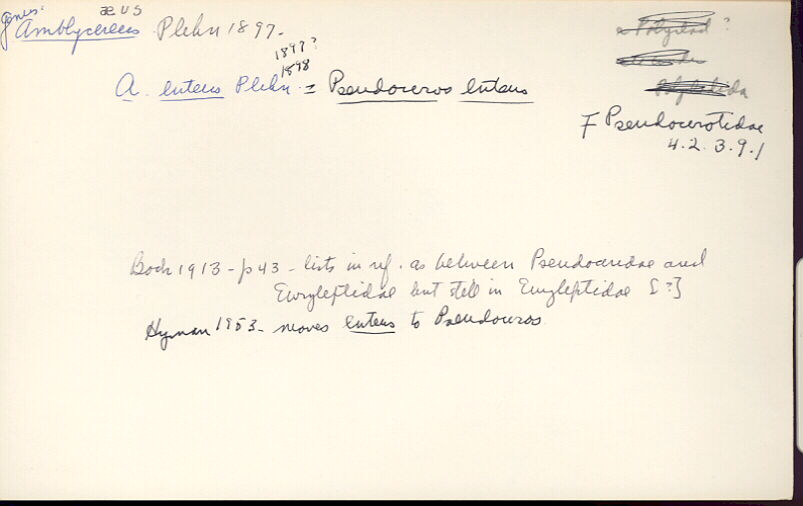 genus: æus
Amblyceraeus Plehn 1897-
1897?
1898
A. luteus Plehn = Pseudoceros luteus
Polyclad ?
F Pseudocerotidae
4.2.3.9.1
Bock 1913 - p 43 - lists in ref. as between Pseudoceridae and
Euryleptidae but still in Euryleptidae [?]
Hyman 1953 - moves luteus to Pseudoceros